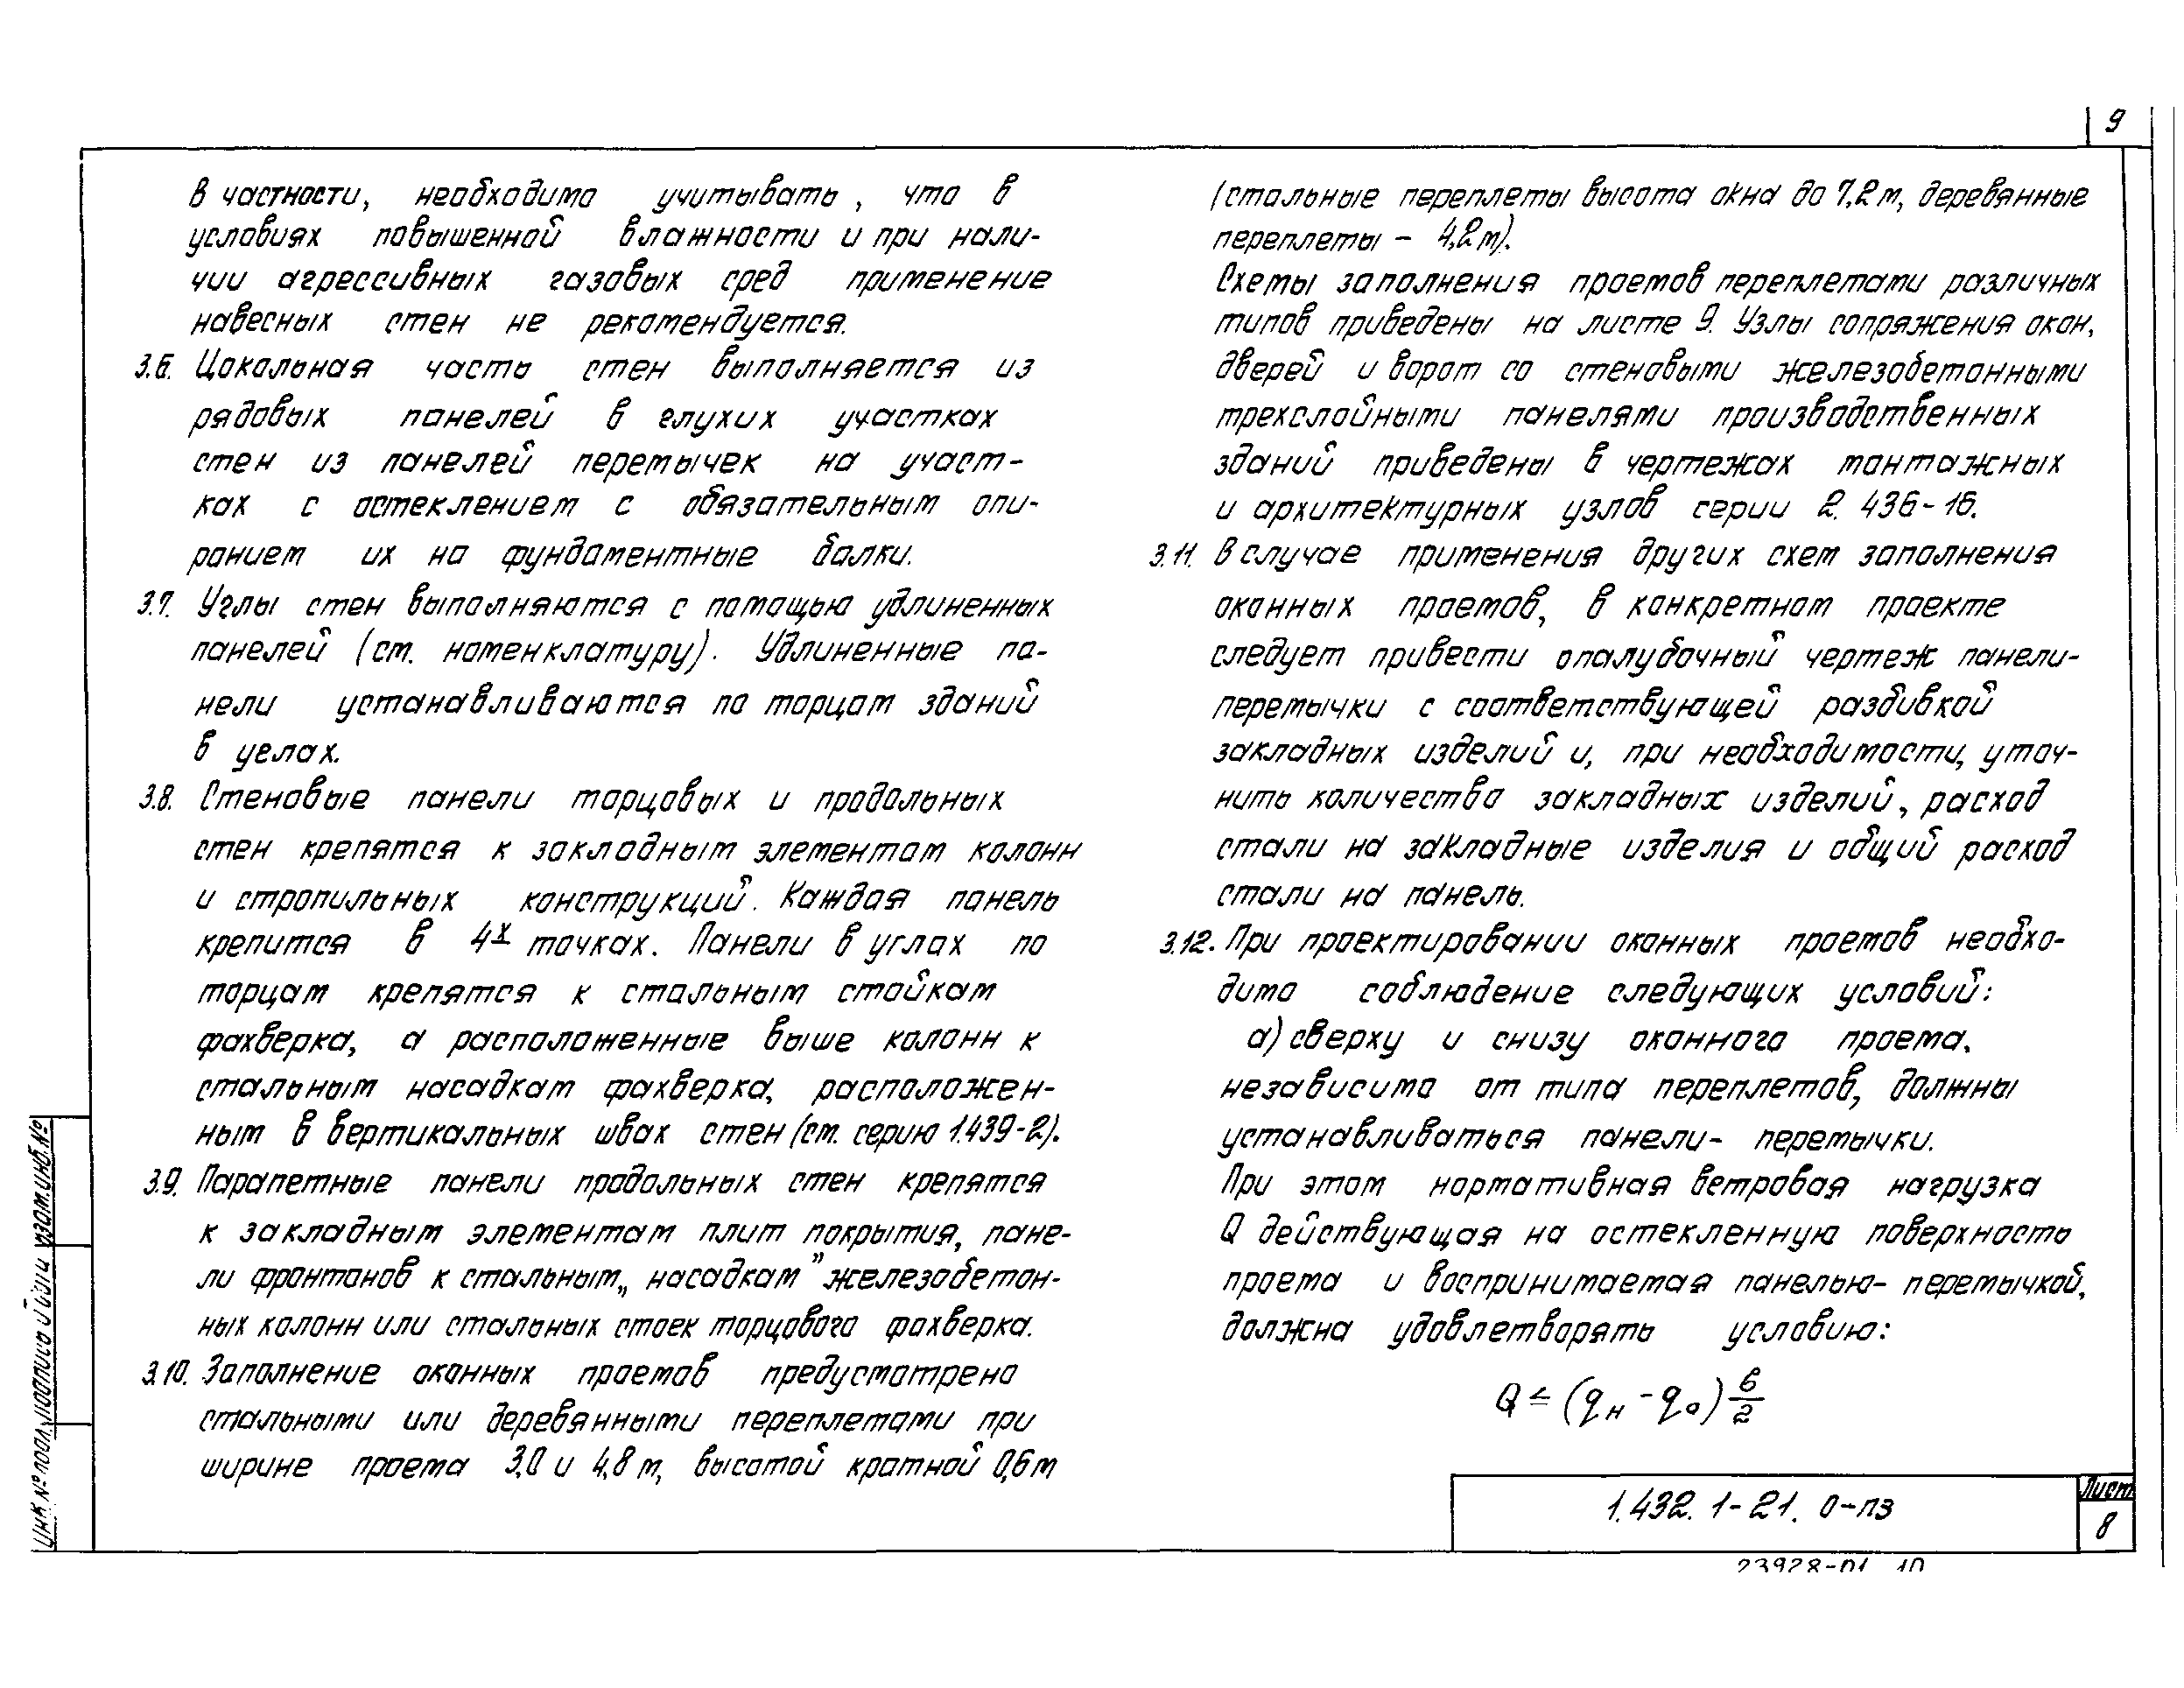 9
в частности, необходимо учитывать, что в
условиях повышенной влажности и при нали-
чии агрессивных газовых сред применение
навесных стен не рекомендуется.
3.6. Цокольная часть стен выполняется из
рядовых панелей в глухих участках
стен из панелей перемычек на участ-
ках с остеклением с обязательным опи-
ранием их на фундаментные балки.
3.7. Углы стен выполняются с помощью удлиненных
панелей (см. номенклатуру). Удлиненные па-
нели устанавливаются по торцам зданий
в углах.
3.8. Стеновые панели торцовых и продольных
стен крепятся к закладным элементам колонн
и стропильных конструкций. Каждая панель
крепится в 4х точках. Панели в углах по
торцам крепятся к стальным стойкам
фахверка, а расположенные выше колонн к
стальным насадкам фахверка, расположен-
ным в вертикальных швах стен (см. серию 1.439-2).
3.9. Парапетные панели продольных стен крепятся
к закладным элементам плит покрытия, пане-
ли фронтонов к стальным „насадкам" железобетон-
ных колонн или стальных стоек торцового фахверка.
3.10. Заполнение оконных проемов предусмотрено
стальными или деревянными переплетами при
ширине проема 3,0 и 4,8 м, высотой кратной 0,6 м
(стальные переплеты высота окна до 7,2 м, деревянные
переплеты – 4,2 м).
Схемы заполнения проемов переплетами различных
типов приведены на листе 9. Узлы сопряжения окон,
дверей и ворот со стеновыми железобетонными
трехслойными панелями производственных
зданий приведены в чертежах монтажных
и архитектурных узлов серии 2.436-16.
3.11. В случае применения других схем заполнения
оконных проемов, в конкретном проекте
следует привести опалубочный чертеж панели-
перемычки с соответствующей разбивкой
закладных изделий и, при необходимости, уточ-
нить количество закладных изделий, расход
стали на закладные изделия и общий расход
стали на панель.
3.12. При проектировании оконных проемов необхо-
димо соблюдение следующих условий:
а) сверху и снизу оконного проема,
независимо от типа переплетов, должны
устанавливаться панели- перемычки.
При этом нормативная ветровая нагрузка
Q действующая на остекленную поверхность
проема и воспринимаемая панелью- перемычкой,
должна удовлетворять условию:
Q ≤ (qн - qо) в/2
1.432.1-21.0-пз
Лист
8
23928-01 10
Инв № подл. Подпись и дата Взам.инв.№